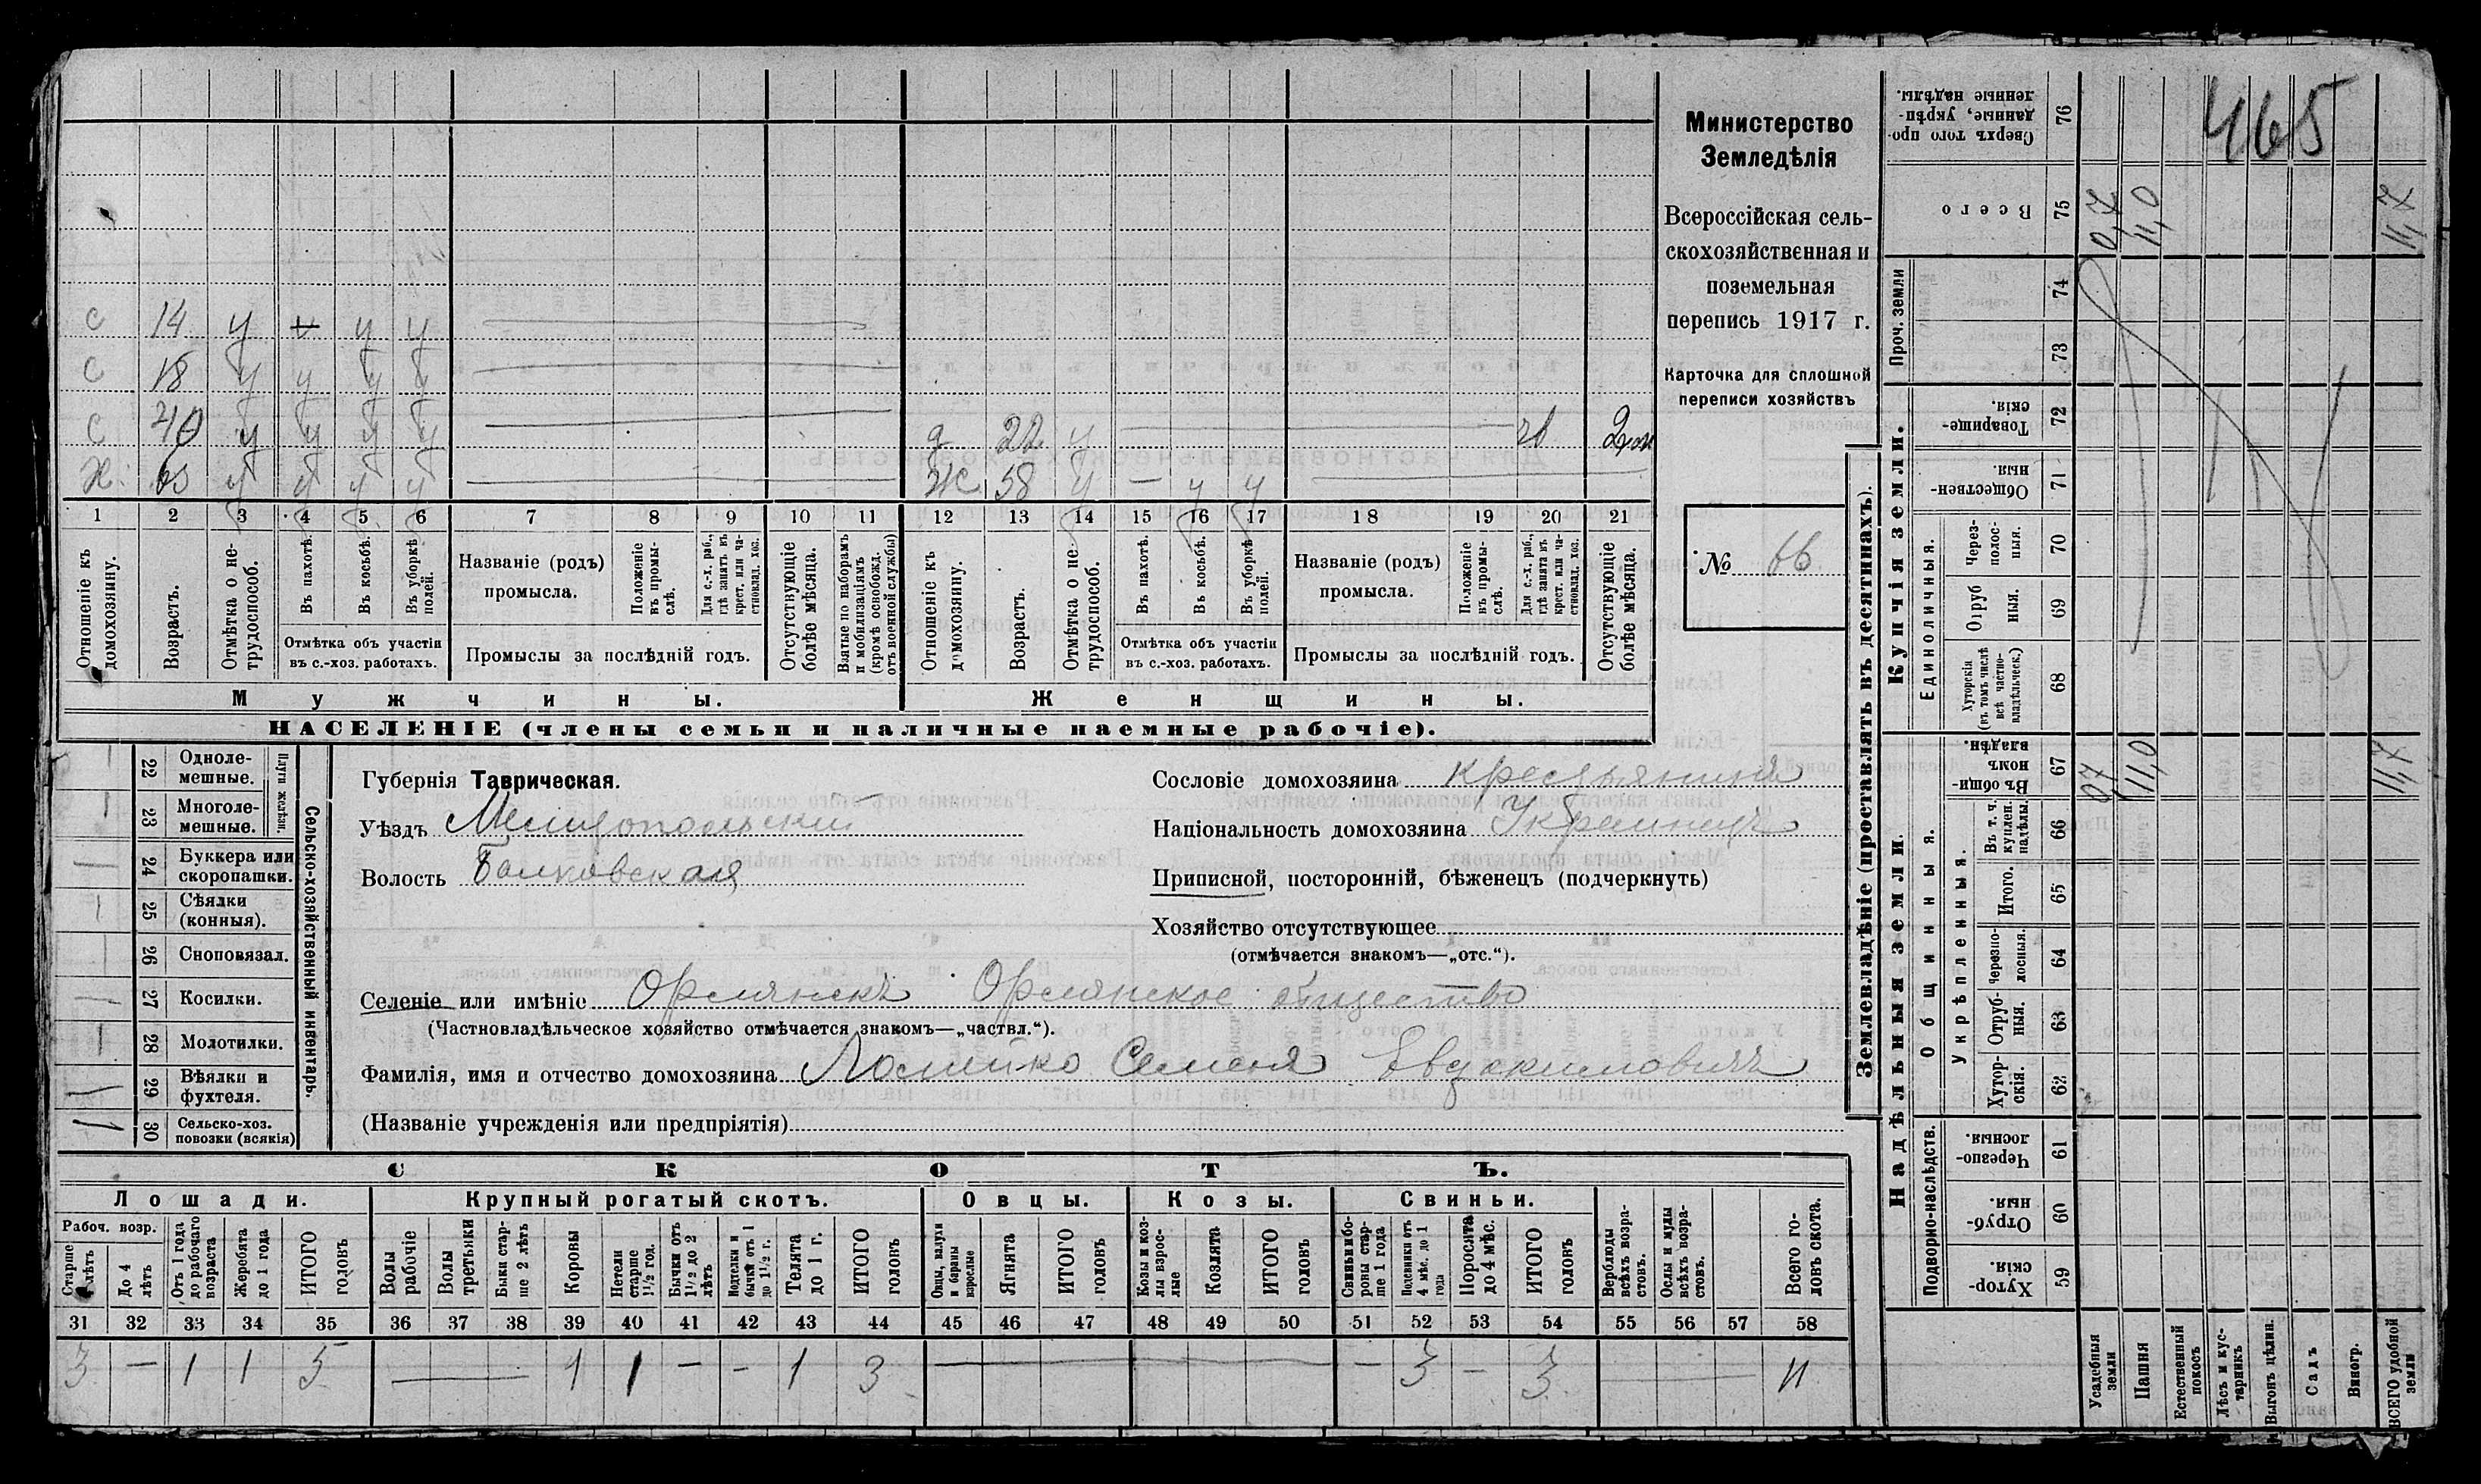 465
Министерство
Земледѣлія
Всероссійская сель-
скохозяйственная и
поземельная
перепись 1917 г.
Карточка для сплошной
переписи хозяйствъ
№ 66
с 14 у у у у
с 18 у у у у
с 40 у у у у д 22 у
Х. у у у у Ж 58 у — у у
1 2 3 4 5 6 7 8 9 10 11 12 13 14 15 16 17 18 19 20 21
Отношеніе къ домохозяину.
Возрастъ.
Отмѣтка о не-трудоспособ.
Въ пахотѣ.
Въ косьбѣ.
Въ уборкѣ полей.
Отмѣтка объ участіи
въ с.-хоз. работахъ.
Названіе (родъ)
промысла.
Положеніе въ промы-слѣ.
Для с.-х. раб., гдѣ занятъ въ крест. или ча-стновлад. хоз.
Промыслы за послѣдній годъ.
Отсутствующіе болѣе мѣсяца.
Взятые по наборамъ и мобилизаціямъ (кромѣ освобожд. отъ военной службы)
Отношеніе къ домохозяину.
Возрастъ.
Отмѣтка о не-трудоспособ.
Въ пахотѣ.
Въ косьбѣ.
Въ уборкѣ полей.
Отмѣтка объ участіи
въ с.-хоз. работахъ.
Названіе (родъ)
промысла.
Положеніе въ промы-слѣ.
Для с.-х. раб., гдѣ занята въ крест. или ча-стновлад. хоз.
Промыслы за послѣдній годъ.
Отсутствующіе болѣе мѣсяца.
Мужчины.
Женщины.
НАСЕЛЕНІЕ (члены семьи и наличные наемные рабочіе).
Сельско-хозяйственный инвентарь.
Плуги желѣзн.
22 Одноле-мешные.
1 23 Многоле-мешные.
— 24 Буккера или скоропашки.
1 25 Сѣялки (конныя).
— 26 Сноповязал.
1 27 Косилки.
— 28 Молотилки.
1 29 Вѣялки и фухтеля.
1 30 Сельско-хоз. повозки (всякія)
Губернія Таврическая.
Уѣздъ Мелитопольскій
Волость Балковская
Сословіе домохозяина крестьянинъ
Національность домохозяина Украинецъ
Приписной, посторонній, бѣженецъ (подчеркнуть)
Хозяйство отсутствующее
(отмѣчается знакомъ—„отс.“).
Селеніе или имѣніе Орлянскъ Орлянское общество
(Частновладѣльческое хозяйство отмѣчается знакомъ—„частвл.“).
Фамилія, имя и отчество домохозяина Ломейко Семенъ Евдокимовичъ
(Названіе учрежденія или предпріятія)
СКОТЪ.
Лошади. Крупный рогатый скотъ. Овцы. Козы. Свиньи.
Рабоч. возр.
Старше 4 лѣтъ
До 4 лѣтъ
Отъ 1 года до рабочаго возраста
Жеребята до 1 года
ИТОГО головъ
Волы рабочіе
Волы третьяки
Быки стар-ше 2 лѣтъ
Коровы
Нетели старше 1½ год.
Бычки отъ 1½ до 2 лѣтъ
Подтелки и бычки отъ 1 до 1½ г.
Телята до 1 г.
ИТОГО головъ
Овцы, валухи и бараны взрослые
Ягнята
ИТОГО головъ
Козы и коз-лы взрос-лые
Козлята
ИТОГО головъ
Свиньи и бо-ровы стар-ше 1 года
Подсвинки отъ 4 мѣс. до 1 года
Поросята до 4 мѣс.
ИТОГО головъ
Верблюды всѣхъ возра-стовъ.
Ослы и мулы всѣхъ возра-стовъ.
Всего го-ловъ скота.
31 32 33 34 35 36 37 38 39 40 41 42 43 44 45 46 47 48 49 50 51 52 53 54 55 56 57 58
3 — 1 1 5 — 1 1 — — 1 3 — — 3 — 3 — 11
Землевладѣніе (проставлять въ десятинахъ).
Купчія земли.
Надѣльныя земли.
Сверхъ того про-данные, укрѣп-ленные надѣлы. 76
Всего 75 0,7 11,0 11,7
Проч. земли 74 73
Товарище-скія. 72
Обществен-ныя. 71
Единоличныя.
Черезполос-ныя. 70
Отрубныя. 69
Хуторскія (въ томъ числѣ всѣ частно-владѣльческ.) 68
Общинныя.
Въ общин. владѣн. 67 0,7 11,0 11,7
Укрѣпленныя.
Въ т. ч. куплен. надѣлы. 66
Итого. 65
Черезпо-лосныя. 64
Отруб-ныя. 63
Хутор-скія. 62
Подворно-наслѣдств.
Черезпо-лосныя. 61
Отруб-ныя. 60
Хутор-скія. 59
Усадебныя земли
Пашня
Естественный покосъ
Лѣсъ и кус-тарникъ
Выгонъ цѣлин.
Садъ
Виногр.
ВСЕГО удобной земли